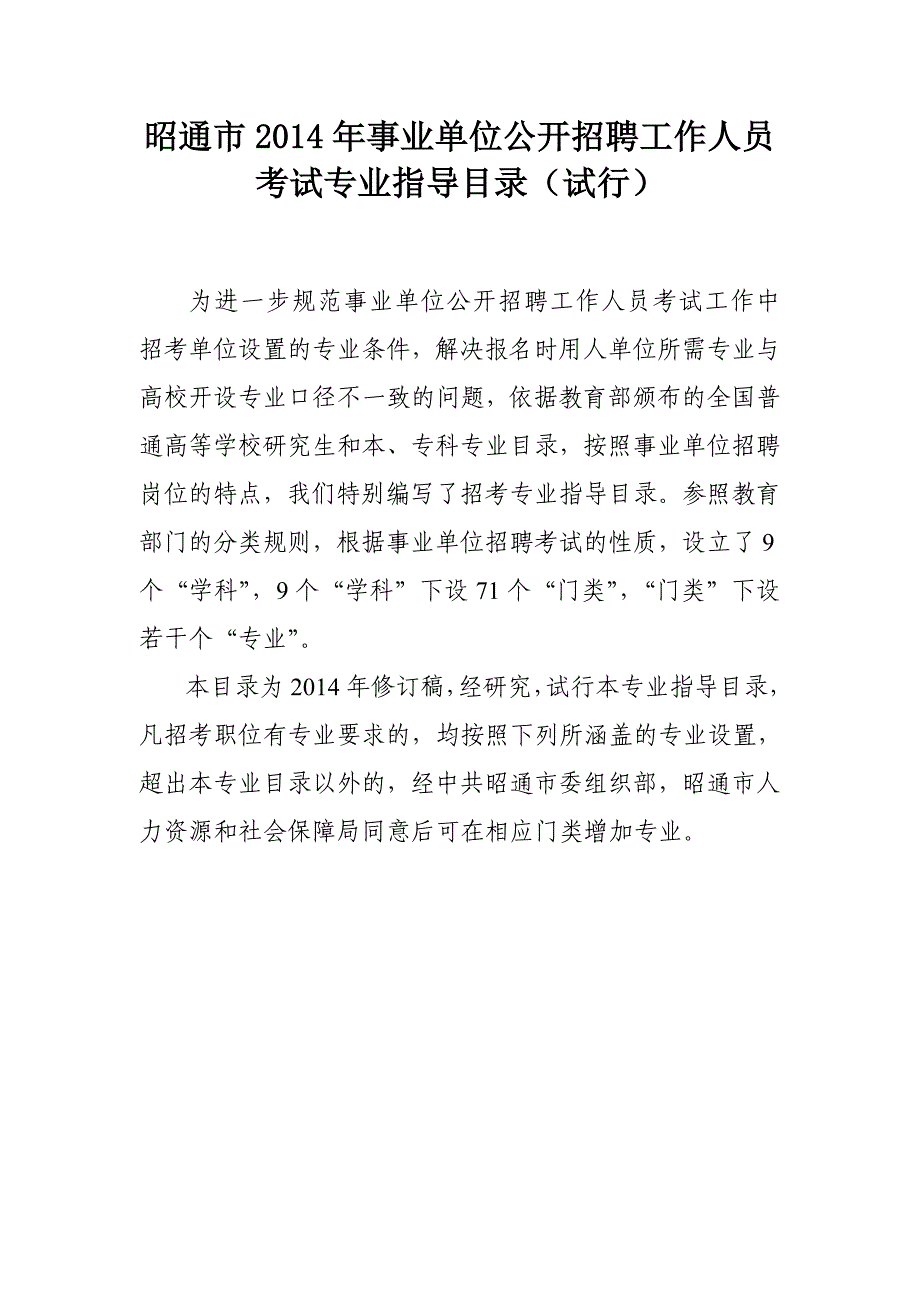 昭通市 2014 年事业单位公开招聘工作人员
考试专业指导目录（试行）
为进一步规范事业单位公开招聘工作人员考试工作中
招考单位设置的专业条件，解决报名时用人单位所需专业与
高校开设专业口径不一致的问题，依据教育部颁布的全国普
通高等学校研究生和本、专科专业目录，按照事业单位招聘
岗位的特点，我们特别编写了招考专业指导目录。参照教育
部门的分类规则，根据事业单位招聘考试的性质，设立了 9
个“学科”，9 个“学科”下设 71 个“门类”，“门类”下设
若干个“专业”。
本目录为 2014 年修订稿，经研究，试行本专业指导目录，
凡招考职位有专业要求的，均按照下列所涵盖的专业设置，
超出本专业目录以外的，经中共昭通市委组织部，昭通市人
力资源和社会保障局同意后可在相应门类增加专业。